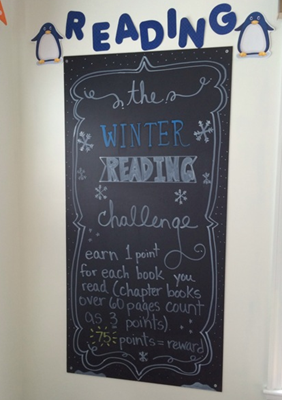 READING
the
WINTER
READING
challenge
earn 1 point
for each book you
read (chapter books
over 60 pages count
as 3 points).
75 points = reward